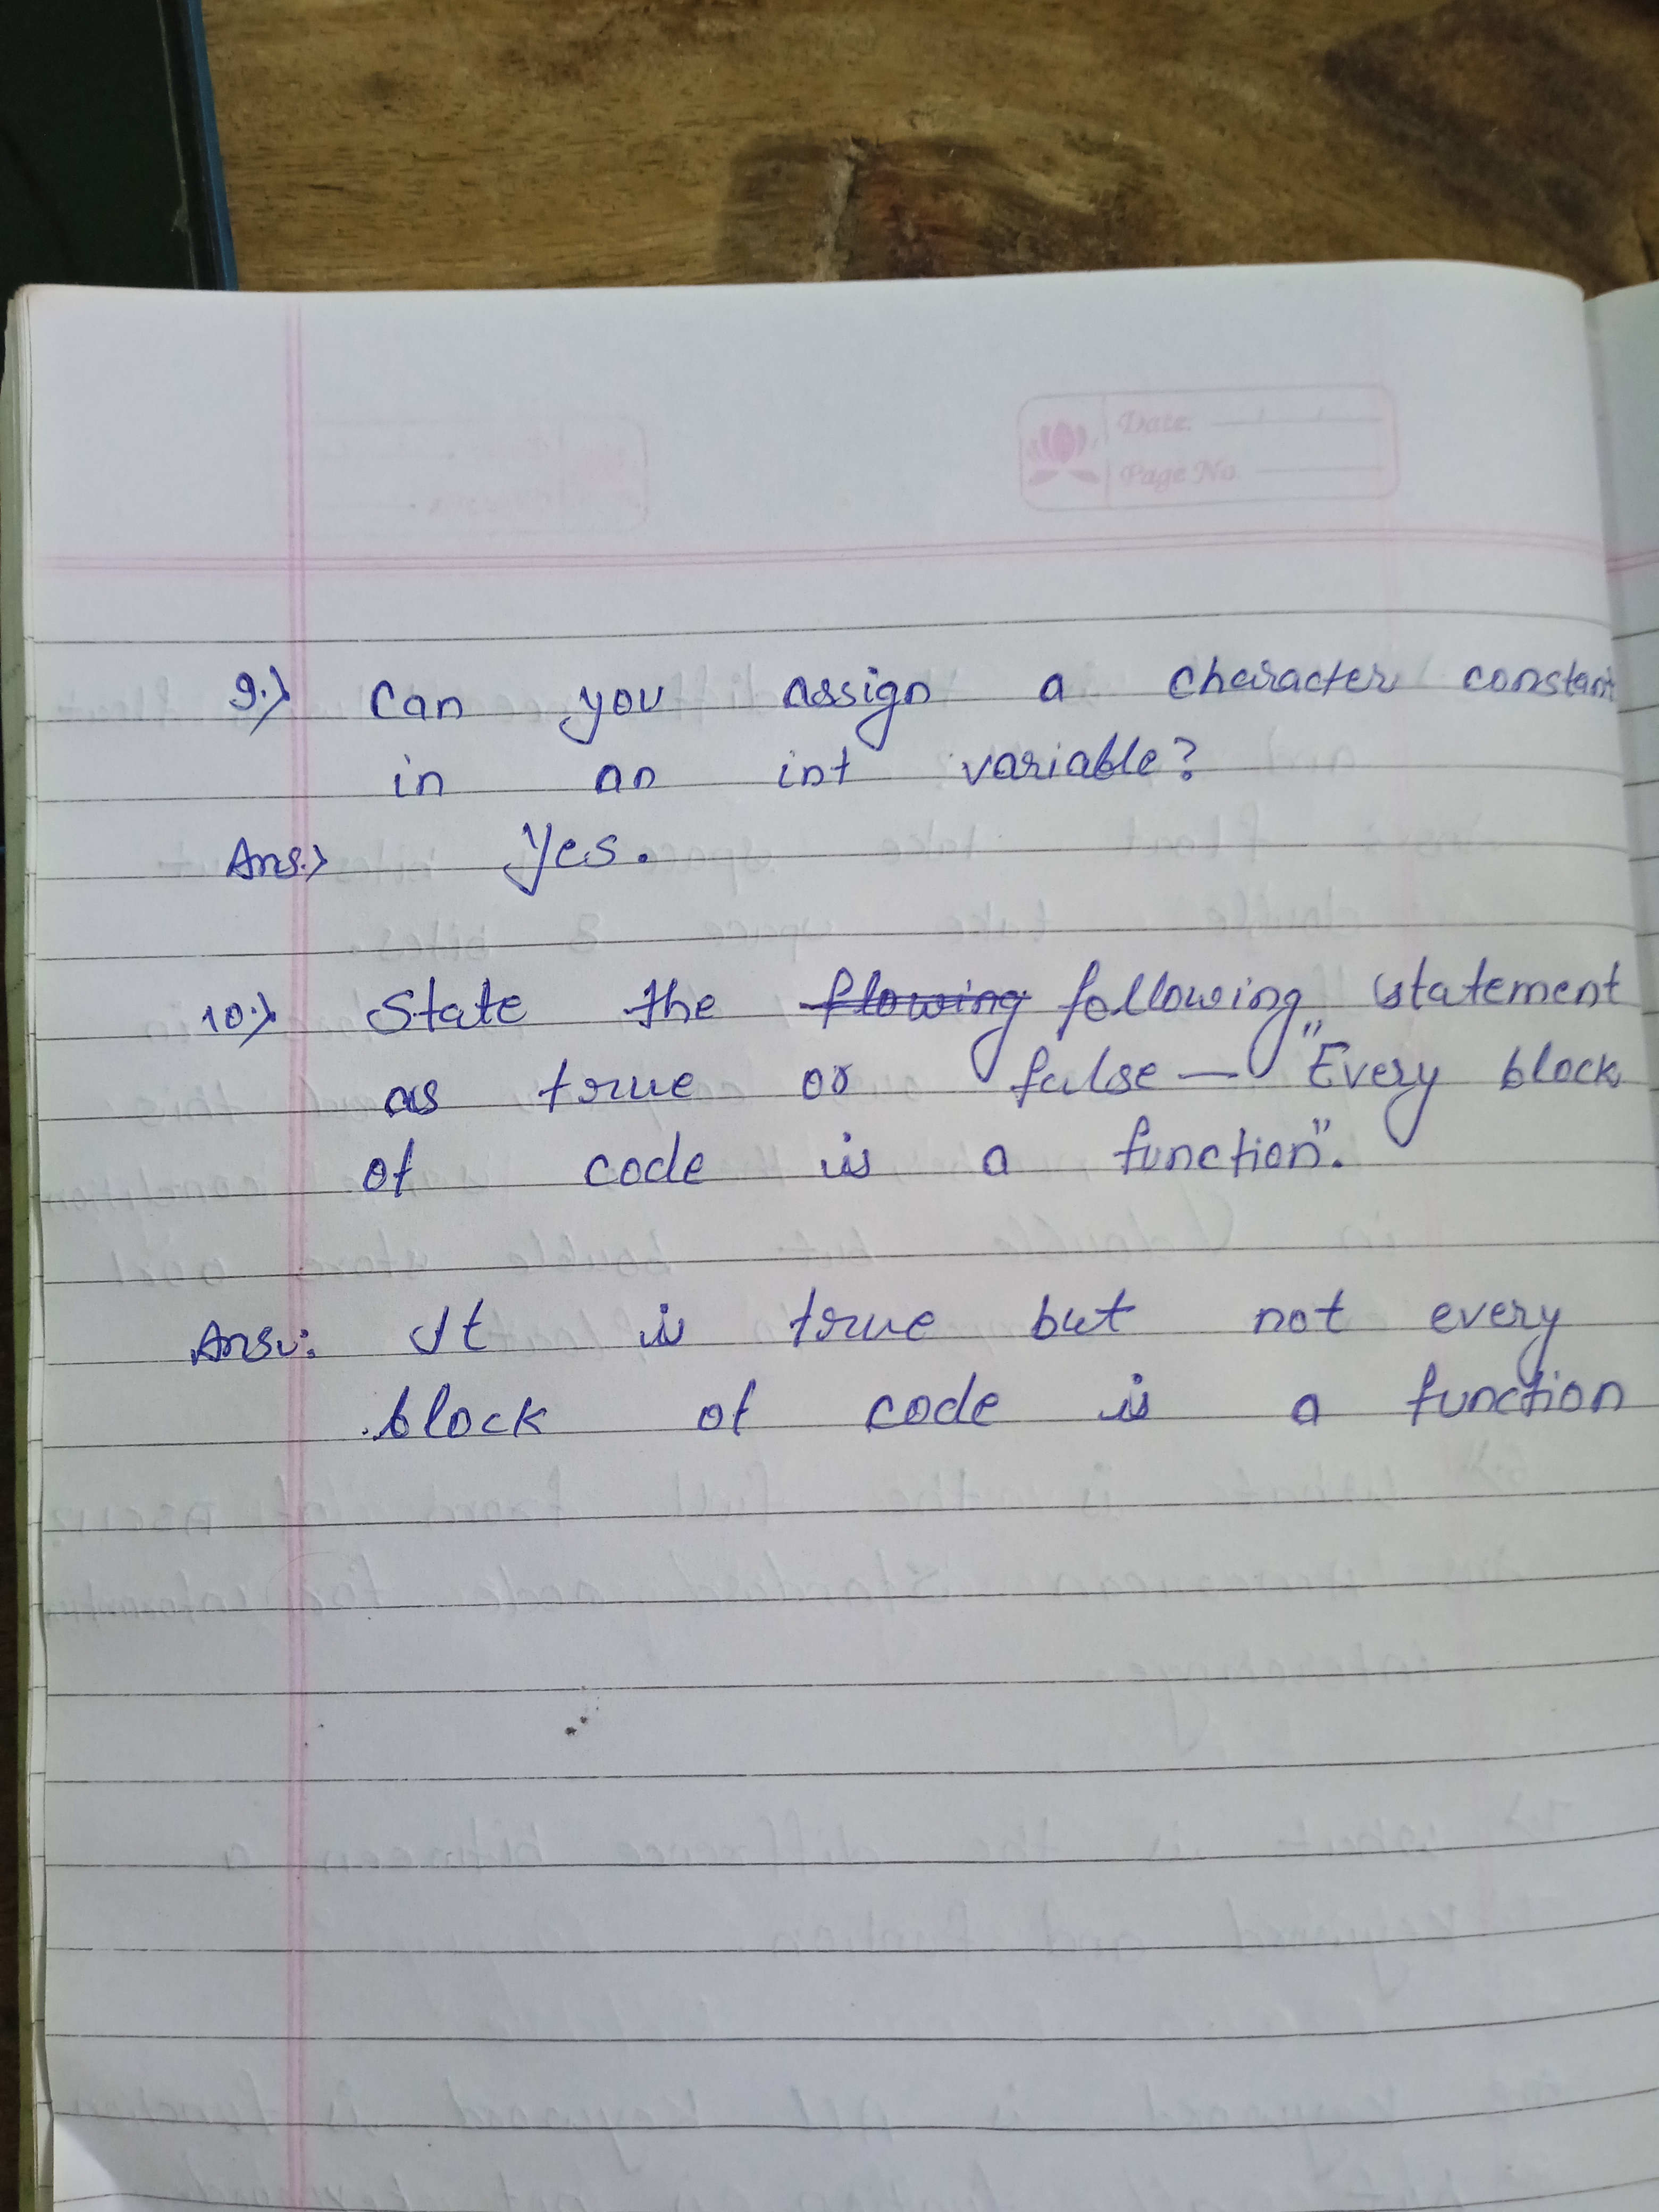 Date.
Page No
9.) Can you assign a character constant
in an int variable?
Ans.> Yes.
10.) State the flowing following statement
as true or false — "Every block
of code is a function".
Ans: It is true but not every
block of code is a function